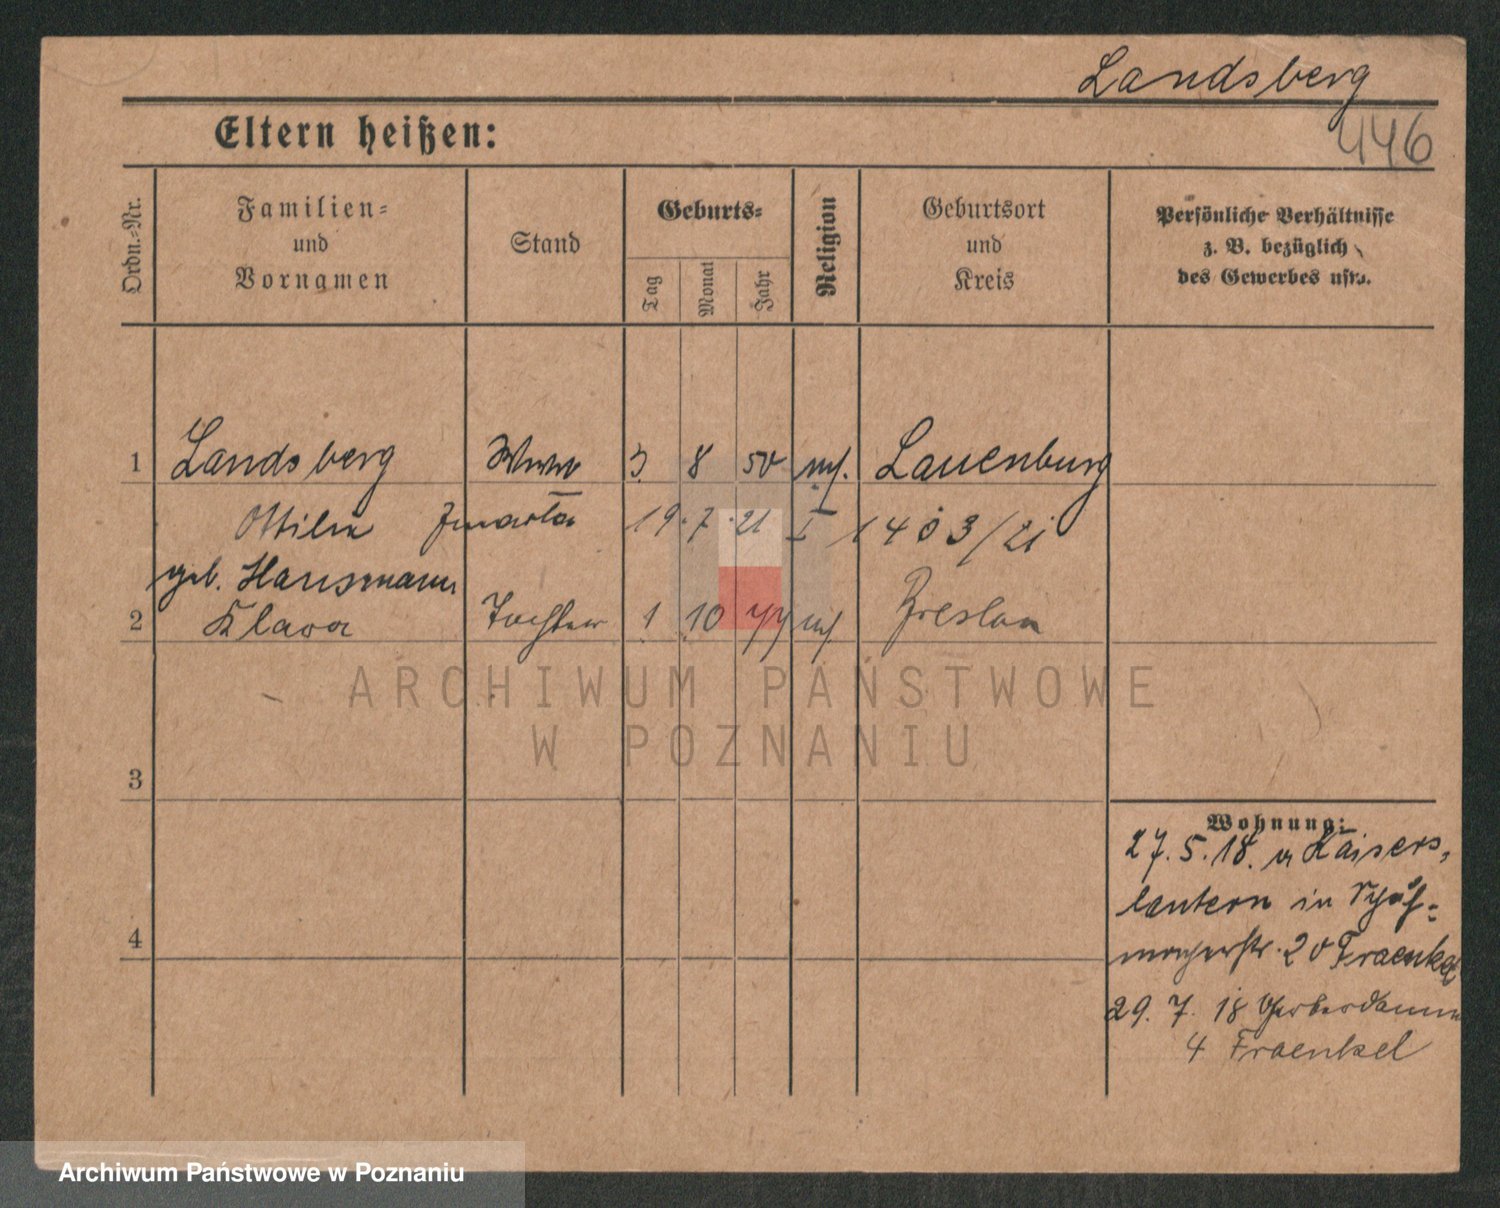 Landsberg
446
Eltern heißen:
Ordn.=Nr.
Familien=
und
Vornamen
Stand
Geburts=
Tag
Monat
Jahr
Religion
Geburtsort
und
Kreis
Persönliche Verhältnisse
z. B. bezüglich
des Gewerbes usw.
1 Landsberg 3 8 50 Lauenburg
Ottilie 19.7.21 I 1403/21
geb. Hausmann
2 Klara Tochter 1 10 77 Breslau
ARCHIWUM PAŃSTWOWE
W POZNANIU
3
4
Wohnung:
27.5.18. Kaisers-
lautern in
20 Fraenkel
29.7.18 Gerberdamm
4 Fraenkel
Archiwum Państwowe w Poznaniu